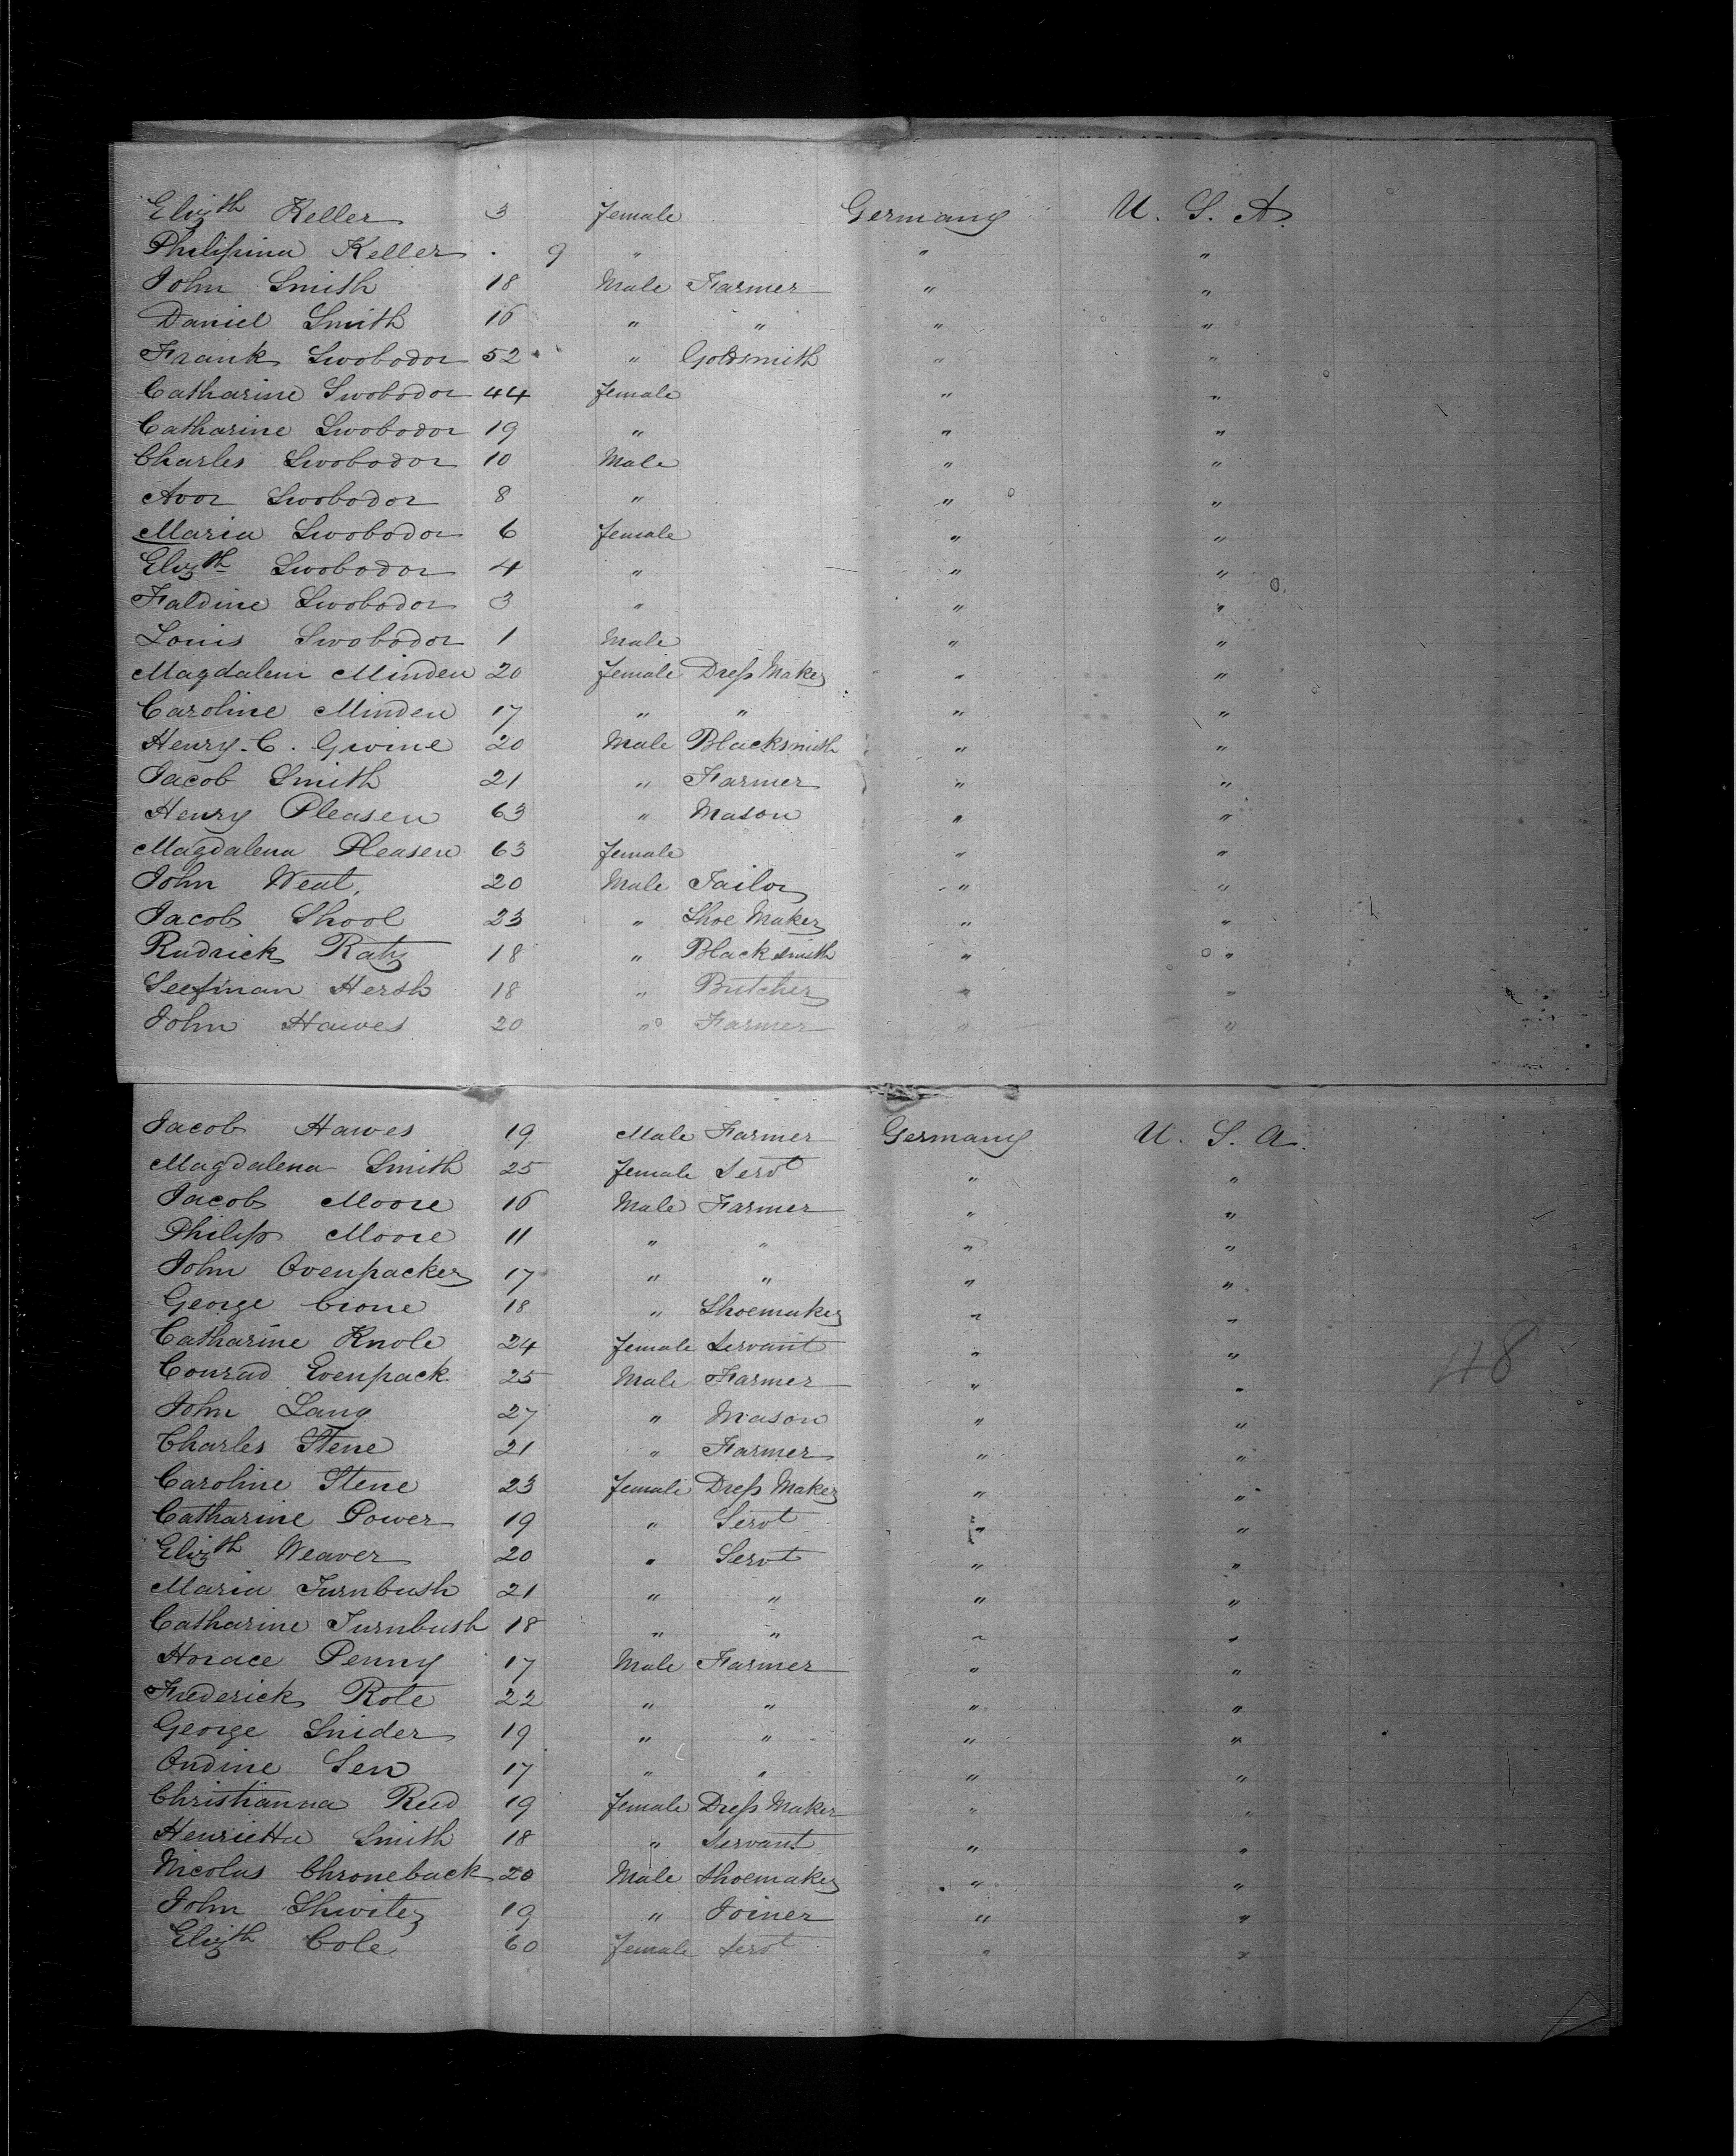 Elizth Keller 3 female Germany U. S. A.
Philipina Keller . 9 " " "
John Smith 18 Male Farmer " "
Daniel Smith 16 " " " "
Frank Swobodor 52 " Goldsmith " "
Catharine Swobodor 44 female " "
Catharine Swobodor 19 " " "
Charles Swobodor 10 Male " "
Avor Swobodor 8 " " "
Maria Swobodor 6 female " "
Elizth Swobodor 4 " " "
Faldine Swobodor 3 " " "
Louis Swobodor 1 Male " "
Magdalem Minden 20 female Dress Maker " "
Caroline Minden 17 " " " "
Henry. C. Gwine 20 Male Blacksmith " "
Jacob Smith 21 " Farmer " "
Henry Pleasen 63 " Mason " "
Magdalena Pleasen 63 female " "
John Weat, 20 Male Tailor " "
Jacob Shool 23 " Shoe Maker " "
Rudrick Ratz 18 " Black smith " "
Seefman Hersh 18 " Butcher " "
John Hawes 20 " Farmer " "
Jacob Hawes 19 Male Farmer Germany U. S. A.
Magdalena Smith 25 female Servt " "
Jacob Moore 16 Male Farmer " "
Philip Moore 11 " " " "
John Ovenpacker 17 " " " "
George Crone 18 " Shoemaker " "
Catharine Knole 24 female Servant " "
Conrad Evenpack 25 Male Farmer " "
John Lang 27 " Mason " "
Charles Stene 21 " Farmer " "
Caroline Stene 23 female Dress Maker " "
Catharine Power 19 " Servt " "
Elizth Weaver 20 " Servt " "
Maria Turnbush 21 " " " "
Catharine Turnbush 18 " " " "
Horace Penny 17 Male Farmer " "
Frederick Rote 22 " " " "
George Snider 19 " " " "
Ondine Sen 17 " " " "
Christianna Reed 19 female Dress Maker " "
Henrietta Smith 18 " Servant " "
Nicolas Chroneback 20 Male Shoemaker " "
John Shwitez 19 " Joiner " "
Elizth Cole 60 female Servt " "
48